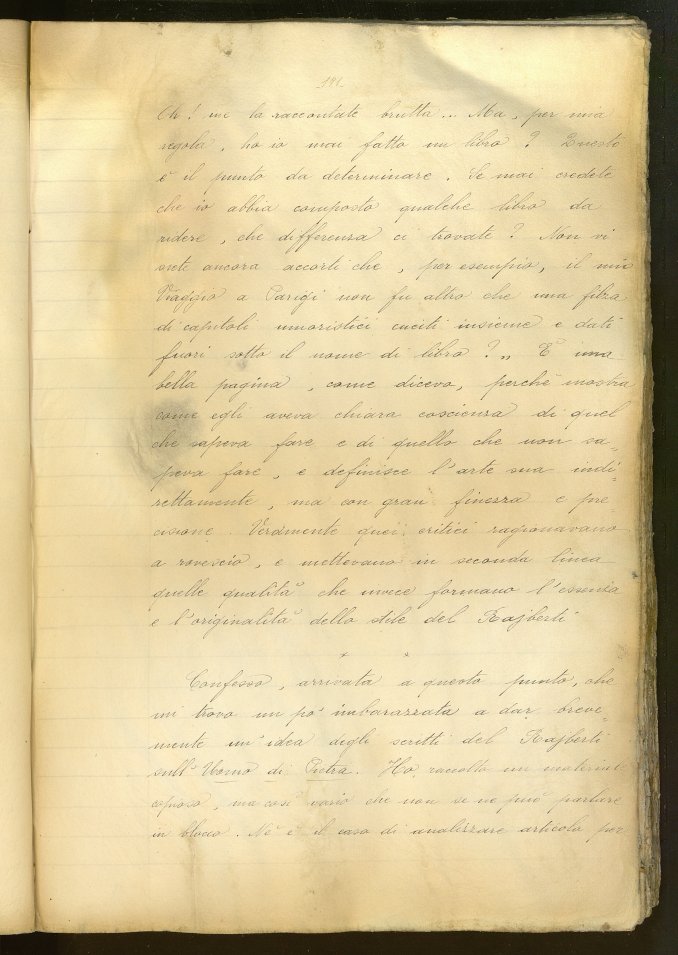 191.
Oh! me la raccontate brutta... Ma, per mia
regola, ho io mai fatto un libro? Questo
è il punto da determinare. Se mai credete
che io abbia composto qualche libro da
ridere, che differenza ci trovate? Non vi
siete ancora accorti che, per esempio, il mio
Viaggio a Parigi non fu altro che una filza
di capitoli umoristici cuciti insieme e dati
fuori sotto il nome di libro?„ È una
bella pagina, come dicevo, perchè mostra
come egli aveva chiara coscienza di quel
che sapeva fare e di quello che non sa-
peva fare, e definisce l'arte sua indi-
rettamente, ma con gran finezza e pre-
cisione. Veramente quei critici ragionavano
a rovescio, e mettevano in seconda linea
quelle qualità che invece formano l'essenza
e l'originalità dello stile del Rajberti
* *
Confesso, arrivata a questo punto, che
mi trovo un po' imbarazzata a dar breve-
mente un'idea degli scritti del Rajberti
sull'Uomo di Pietra. Ho raccolto un materiale
copioso, ma così vario che non se ne può parlare
in blocco. Nè è il caso di analizzare articolo per